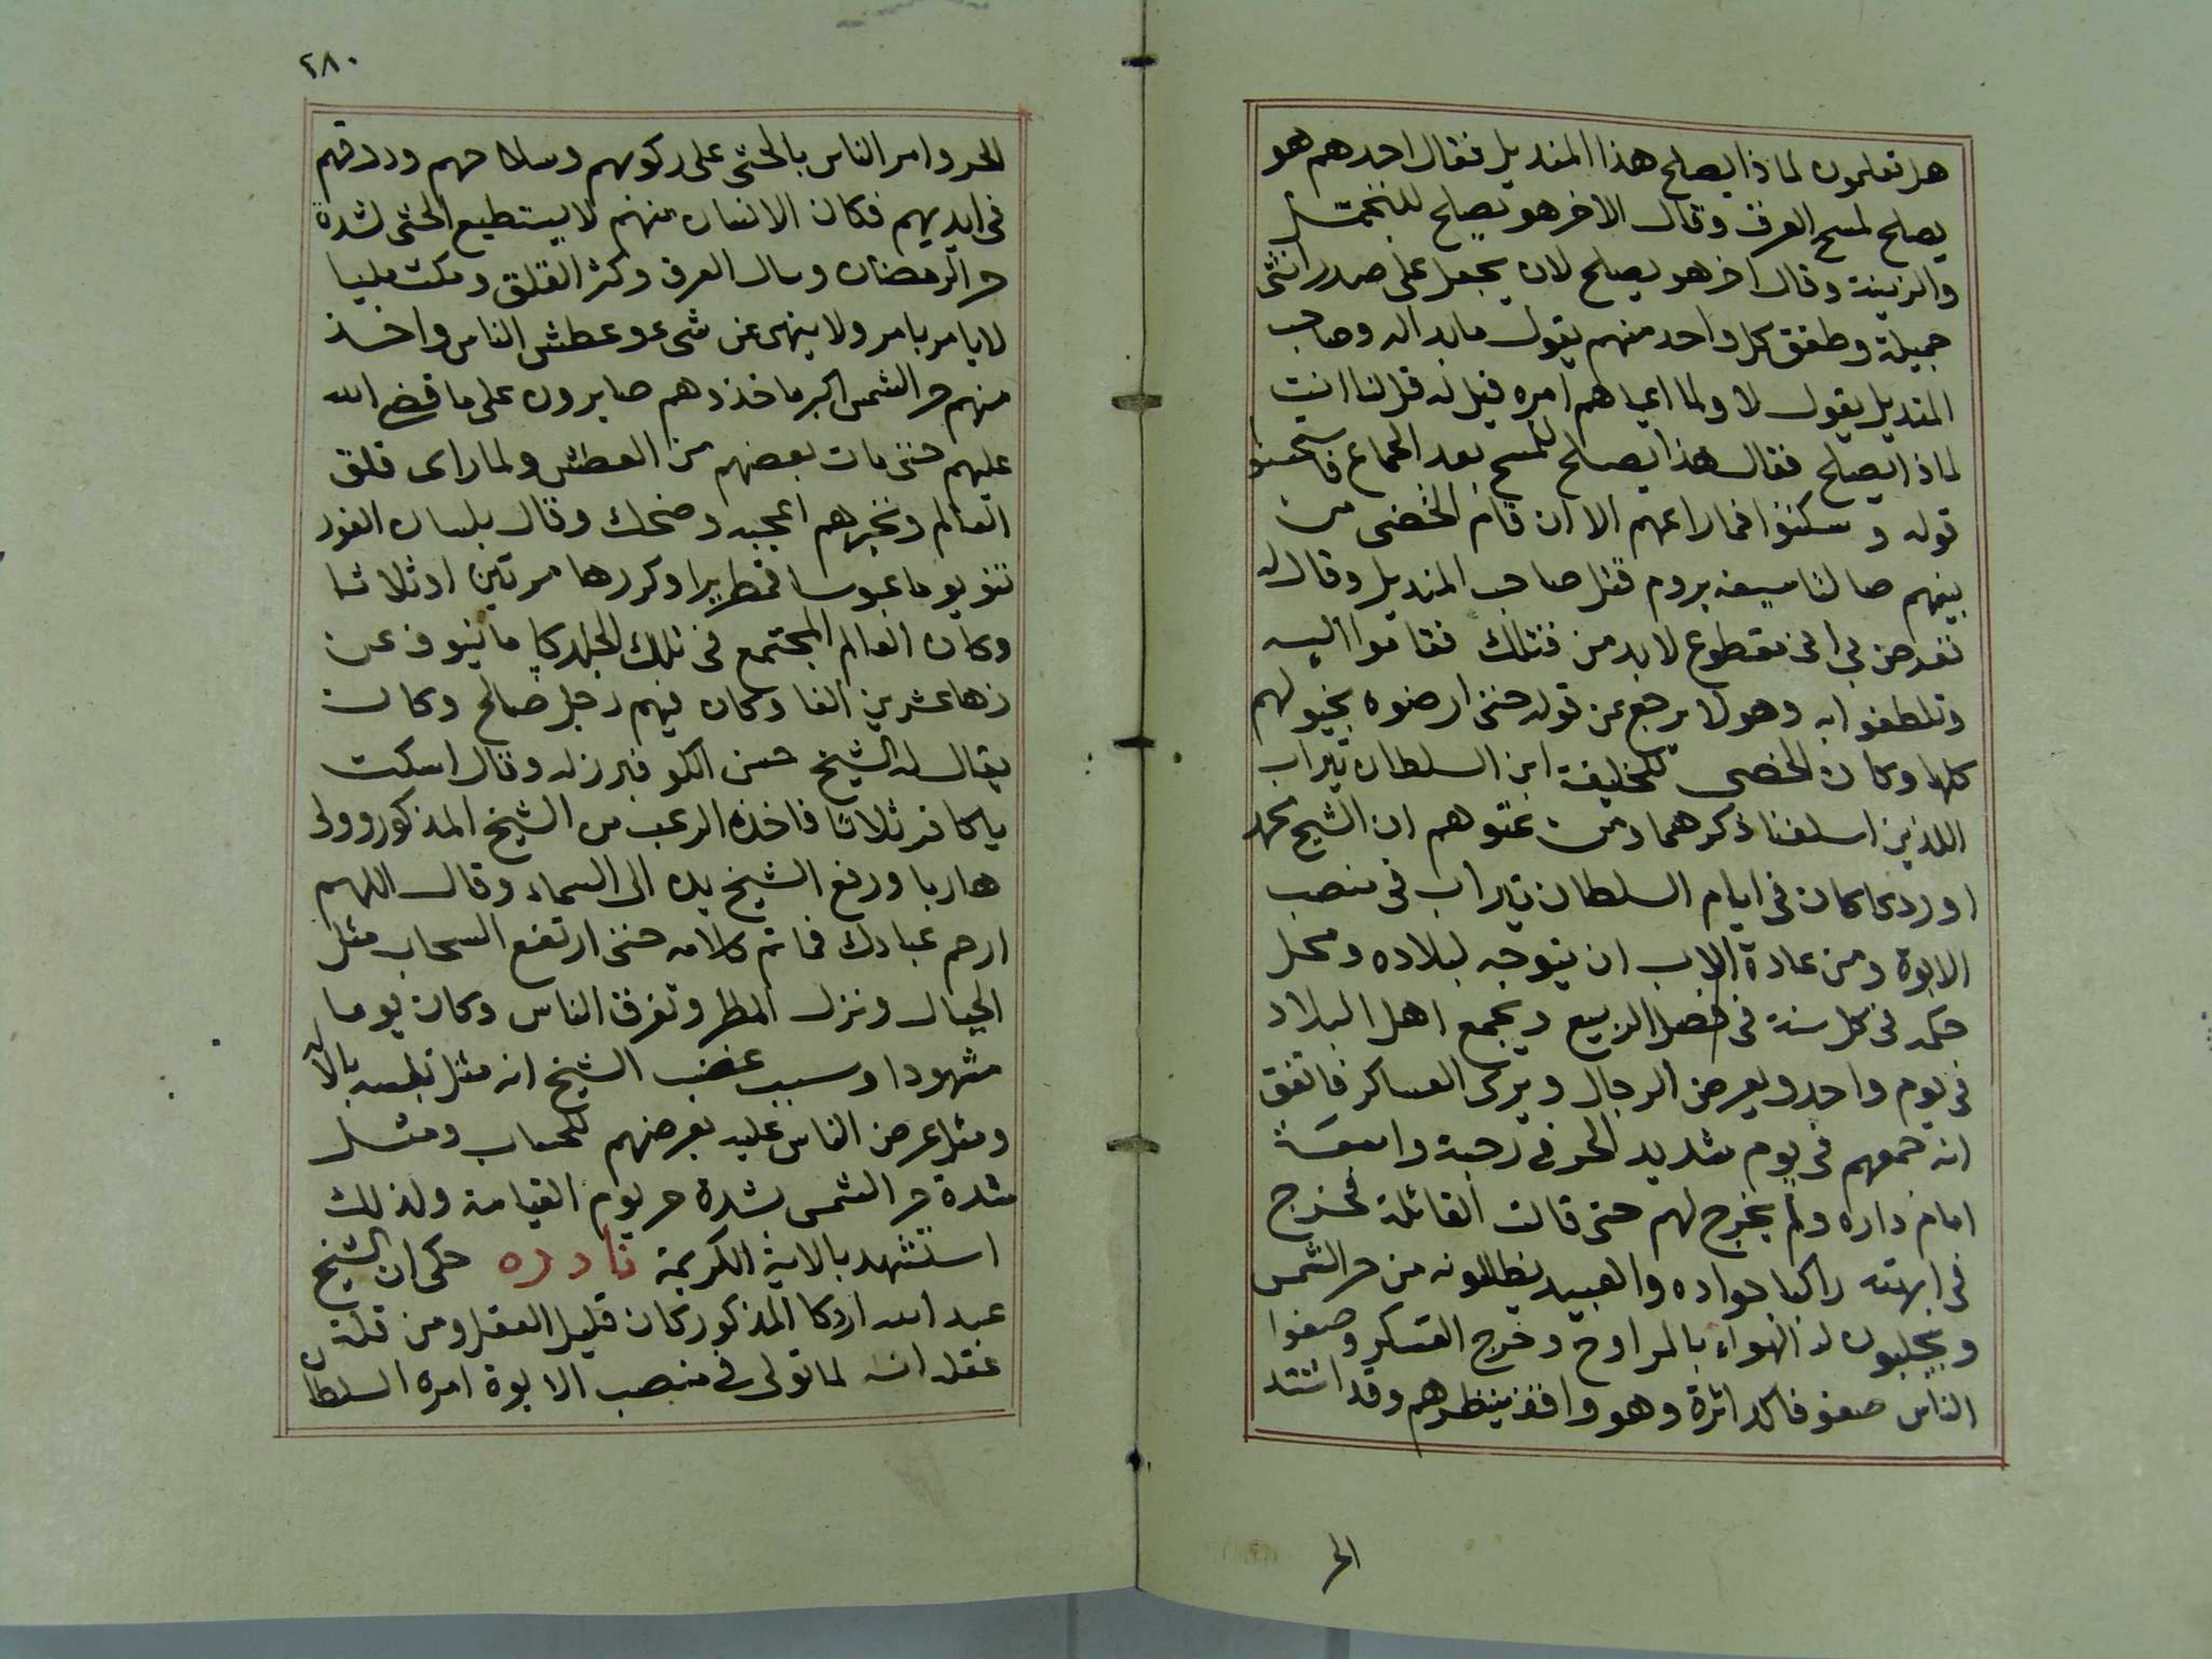 هل تعلمون لماذا يصلح هذا المنديل فقال احدهم هو
يصلح لمسح العرق وقال الاخر هو يصلح للتجمل
والزينة وقال اخر هو يصلح لان يجعل على صدر انثى
جميلة وطفق كل واحد منهم يقول ما بدا له وصاحب
المنديل يقول لا ولما اعياهم امره قيل له قل لنا انت
لماذا يصلح فقال هذا يصلح للمسح بعد الجماع فاستحسنوا
قوله وسكتوا فما راعهم الا ان قام الخصى من
بينهم صالتا سيفه يروم قتل صاحب المنديل وقال له
تعرض بى انى مقطوع لابد من قتلك فقاموا اليه
وتلطفوا به وهو لا يرجع عن قوله حتى ارضوه بخيولهم
كلها وكان الخصى للخليفة ابن السلطان تيراب
اللذين اسلفنا ذكرهما ومن عتوهم ان الشيخ محمد
اوردكا كان فى ايام السلطان تيراب فى منصب
الابوة ومن عادة الاب ان يتوجه لبلاده ومحل
حكمه فى كل سنة فى فصل الربيع ويجمع اهل البلاد
فى يوم واحد ويعرض الرجال ويرى العساكر فاتفق
انه جمعهم فى يوم شديد الحر فى رحبة واسعة
امام داره ولم يخرج لهم حتى قالت القائلة فخرج
فى ابهته راكبا جواده والعبيد يظللونه من حر الشمس
ويجلبون له الهواء بالمراوح وخرج العسكر وصفوا
الناس صفوفا كدائرة وهو واقف ينظرهم وقد اشتد
الحر
٢٨٠
الحر وامر الناس بالجثى على ركوبهم وسلاحهم ودرقهم
فى ايديهم فكان الانسان منهم لا يستطيع الجثى لشدة
حر الرمضان وسال العرق وكثر القلق ومكث مليا
لا يامر بامر ولا ينهى عن شىء وعطش الناس واخذ
منهم حر الشمس اكبر ماخذ وهم صابرون على ما قضى الله
عليهم حتى مات بعضهم من العطش ولما راى قلق
العالم وتخيرهم اعجبه وضحك وقال بلسان الفور
ننو يوما عبوسا قمطريرا وكررها مرتين او ثلاثا
وكان العالم المجتمع فى تلك الجلبة ما نيوف عن
زها عشرين الفا وكان فيهم رجل صالح وكان
يقال له الشيخ حسن الكو فبرز له وقال اسكت
يا كافر ثلاثا فاخذه الرعب من الشيخ المذكور وولى
هاربا ورفع الشيخ يده الى السماء وقال اللهم
ارحم عبادك فما تم كلامه حتى ارتفع السحاب مثل
الجبال ونزل المطر وتفرق الناس وكان يوما
مشهودا وسبب غضب الشيخ انه مثل نفسه بالاله
ومثل عرض الناس عليه بعرضهم للحساب ومثل
شدة حر الشمس بشدة حر يوم القيامة ولذلك
استشهد بالاية الكريمة نادره حكى ان الشيخ
عبد الله اردكا المذكور كان قليل العقل ومن قلة
عقله انه لما تولى فى منصب الابوة امره السلطان